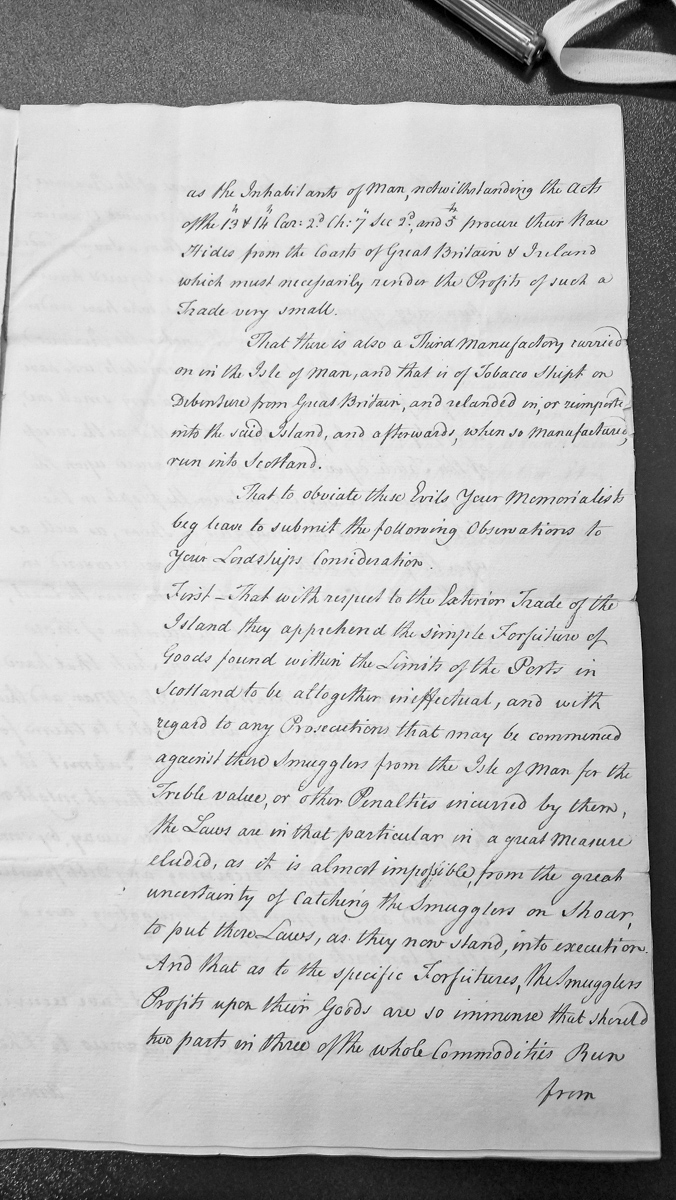 as the Inhabitants of Man, notwithstanding the Acts
of the 13th & 14th Car: 2d. Ch: 7th Sec 2d., and 5th procure their Raw
Hides from the Coasts of Great Britain & Ireland
which must necessarily render the Profits of such a
Trade very small.
That there is also a Third Manufactory carried
on in the Isle of Man, and that is of Tobacco Shipt on
Debenture from Great Britain, and relanded in, or reimported
into the said Island, and afterwards, when so Manufactured,
run into Scotland.
That to obviate these Evils Your Memorialists
beg leave to submit the following Observations to
Your Lordships Consideration.
First – That with respect to the Exterior Trade of the
Island they apprehend the simple Forfeiture of
Goods found within the Limits of the Ports in
Scotland to be altogether ineffectual, and with
regard to any Prosecutions that may be commenced
against these Smugglers from the Isle of Man for the
Treble value, or other Penalties incurred by them,
the Laws are in that particular in a great Measure
eluded, as it is almost impossible, from the great
uncertainty of Catching the Smugglers on Shoar,
to put those Laws, as they now stand, into execution.
And that as to the specific Forfeitures, the Smugglers
Profits upon their Goods are so immense that should
two parts in three of the whole Commodities Run
from